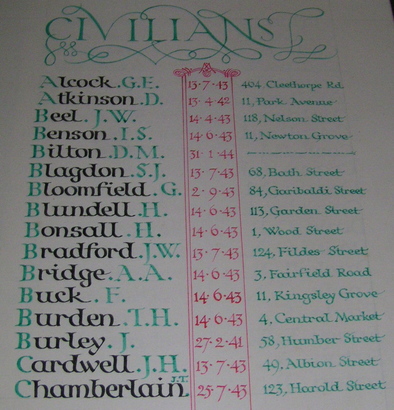 CIVILIANS
Alcock.G.E. 13·7·43 404, Cleethorpe Rd.
Atkinson.D. 13·4·42 11, Park Avenue
Beel.J.W. 14·4·43 118, Nelson Street
Benson.I.S. 14·6·43 11, Newton Grove
Bilton.D.M. 31·1·44
Blagdon.S.J. 13·7·43 68, Bath Street
Bloomfield.G. 2·9·43 84, Garibaldi Street
Blundell.H. 14·6·43 113, Garden Street
Bonsall.H. 14·6·43 1, Wood Street
Bradford.J.W. 13·7·43 124, Fildes Street
Bridge.A.A. 14·6·43 3, Fairfield Road
Buck.F. 14·6·43 11, Kingsley Grove
Burden.T.H. 14·6·43 4, Central Market
Burley.J. 27·2·41 58, Humber Street
Cardwell.J.H. 13·7·43 49, Albion Street
Chamberlain J.T. 25·7·43 123, Harold Street